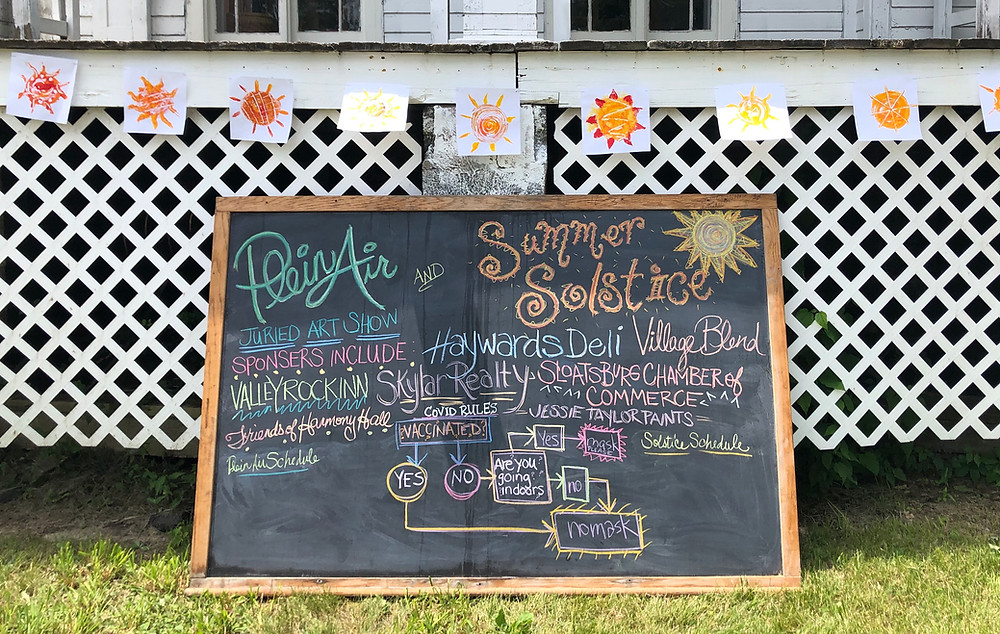 Plein Air
AND
Summer
Solstice
JURIED ART SHOW
SPONSERS INCLUDE
VALLEYROCKINN
Friends of Harmony Hall
Plein Air Schedule
Haywards Deli
Village Blend
Skylar Realty
SLOATSBURG CHAMBER of
COMMERCE
JESSIE TAYLOR PAINTS
Solstice Schedule
COVID RULES
VACCINATED?
YES
NO
Are you
going
indoors
Yes
mask
no
no mask